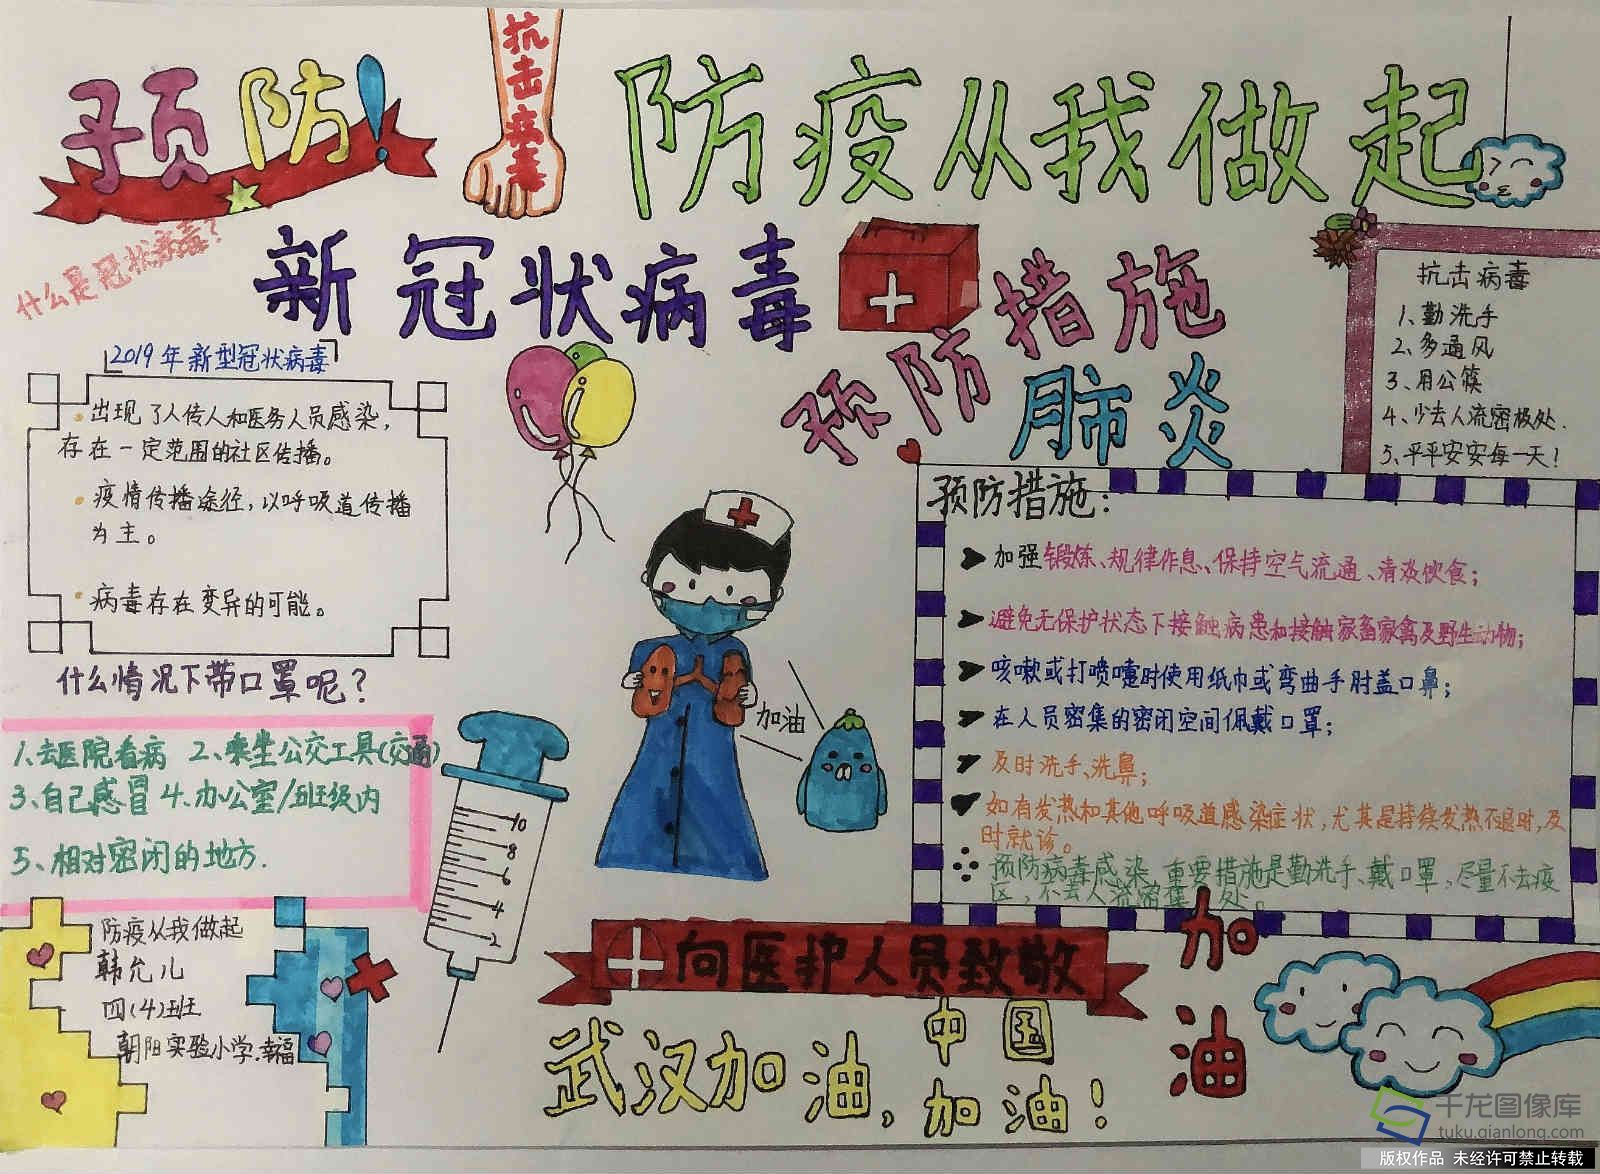 预防!
抗击病毒
防疫从我做起
什么是冠状病毒?
新冠状病毒
预防措施
肺炎
抗击病毒
1、勤洗手
2、多通风
3、用公筷
4、少去人流密极处.
5、平平安安每一天!
2019年新型冠状病毒
出现了人传人和医务人员感染,
存在一定范围的社区传播。
疫情传播途径,以呼吸道传播
为主。
病毒存在变异的可能。
什么情况下带口罩呢?
1、去医院看病 2、乘坐公交工具(交通)
3、自己感冒 4、办公室/班级内
5、相对密闭的地方.
加油
预防措施:
加强锻炼、规律作息、保持空气流通、清淡饮食;
避免无保护状态下接触病患和接触家畜家禽及野生动物;
咳嗽或打喷嚏时使用纸巾或弯曲手肘盖口鼻;
在人员密集的密闭空间佩戴口罩;
及时洗手、洗鼻;
如有发热和其他呼吸道感染症状,尤其是持续发热不退时,及
时就诊。
预防病毒感染,重要措施是勤洗手、戴口罩,尽量不去疫
区,不去人流密集处。
10
8
6
4
2
防疫从我做起
韩允儿
四(4)班
朝阳实验小学.幸福
向医护人员致敬
武汉加油,
中国
加油!
加油
千龙图像库
tuku.qianlong.com
版权作品 未经许可禁止转载